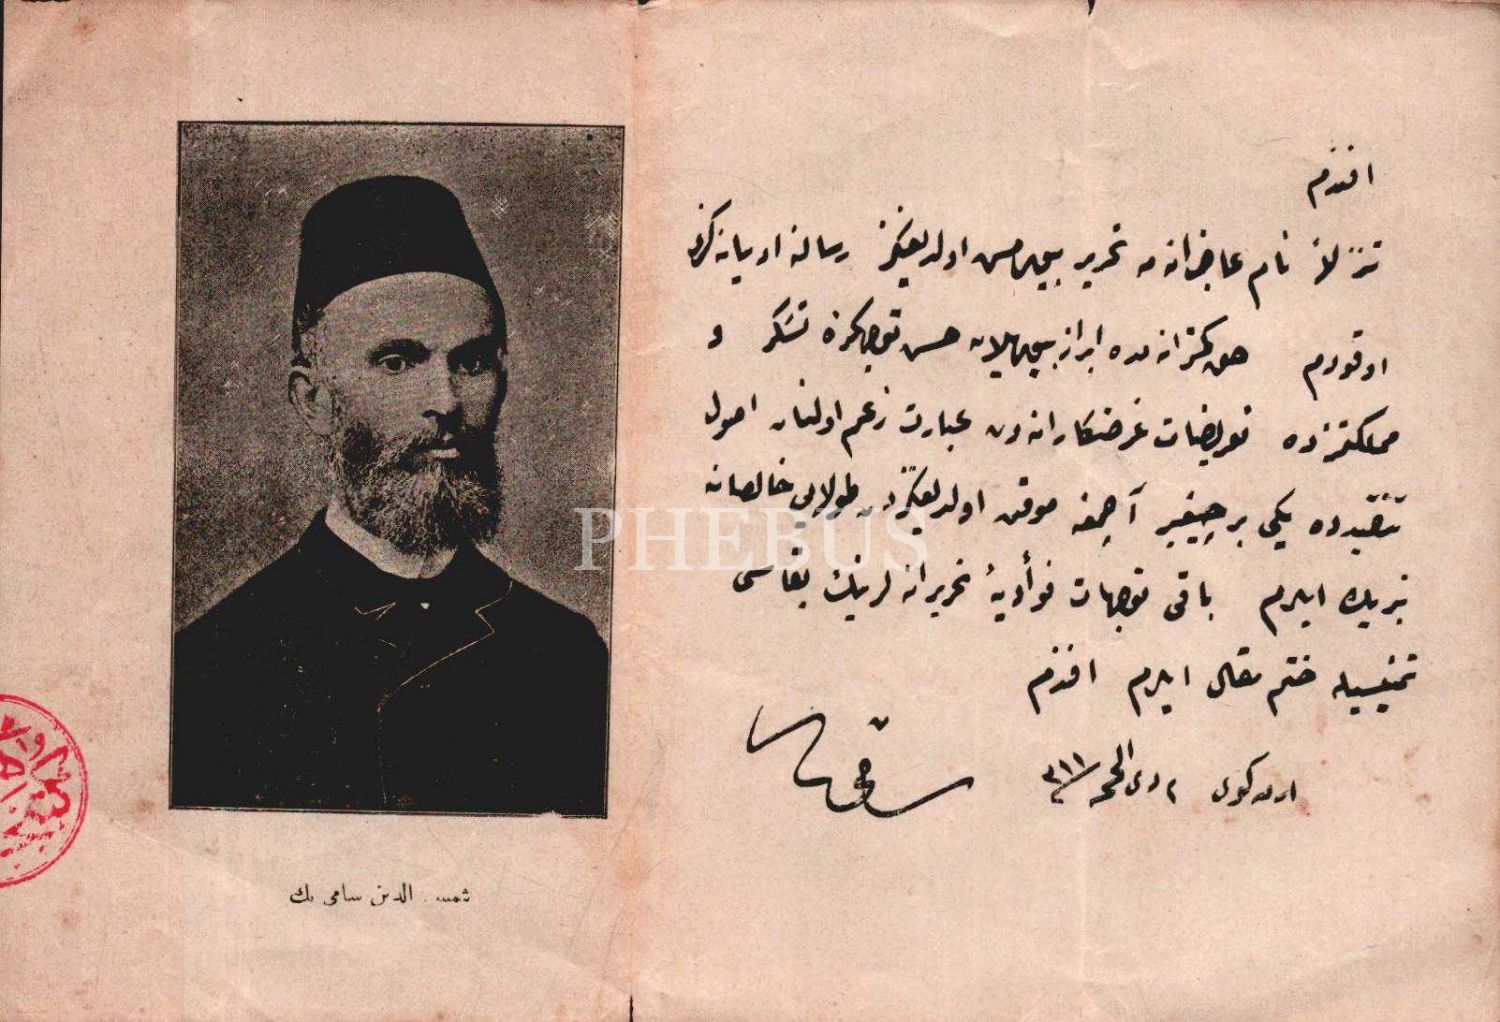 افندم
تنزلاً نام عاجزانه مه تحریر بیورلمش اولدیغکز رساله ادیبانه کزی
اوقودم حق کمترانه مده ابراز بیوریلان حسن توجهکزه تشکر و
مملکتمزده تعریضات غرضکارانه دن عبارت زعم اولنان اصول
تنقیدده یکی بر چیغیر آچمغه موفق اولدیغکزدن طولایی خالصانه
تبریک ایدرم باقی توجهات فوأدیهٔ تحریرانه لرینک بقاسی
تمنیسیله ختم مقال ایدرم افندم
ارنکوی ٢ ذی الحجه ٣١١
سامی
PHEBUS
شمس الدین سامی بك